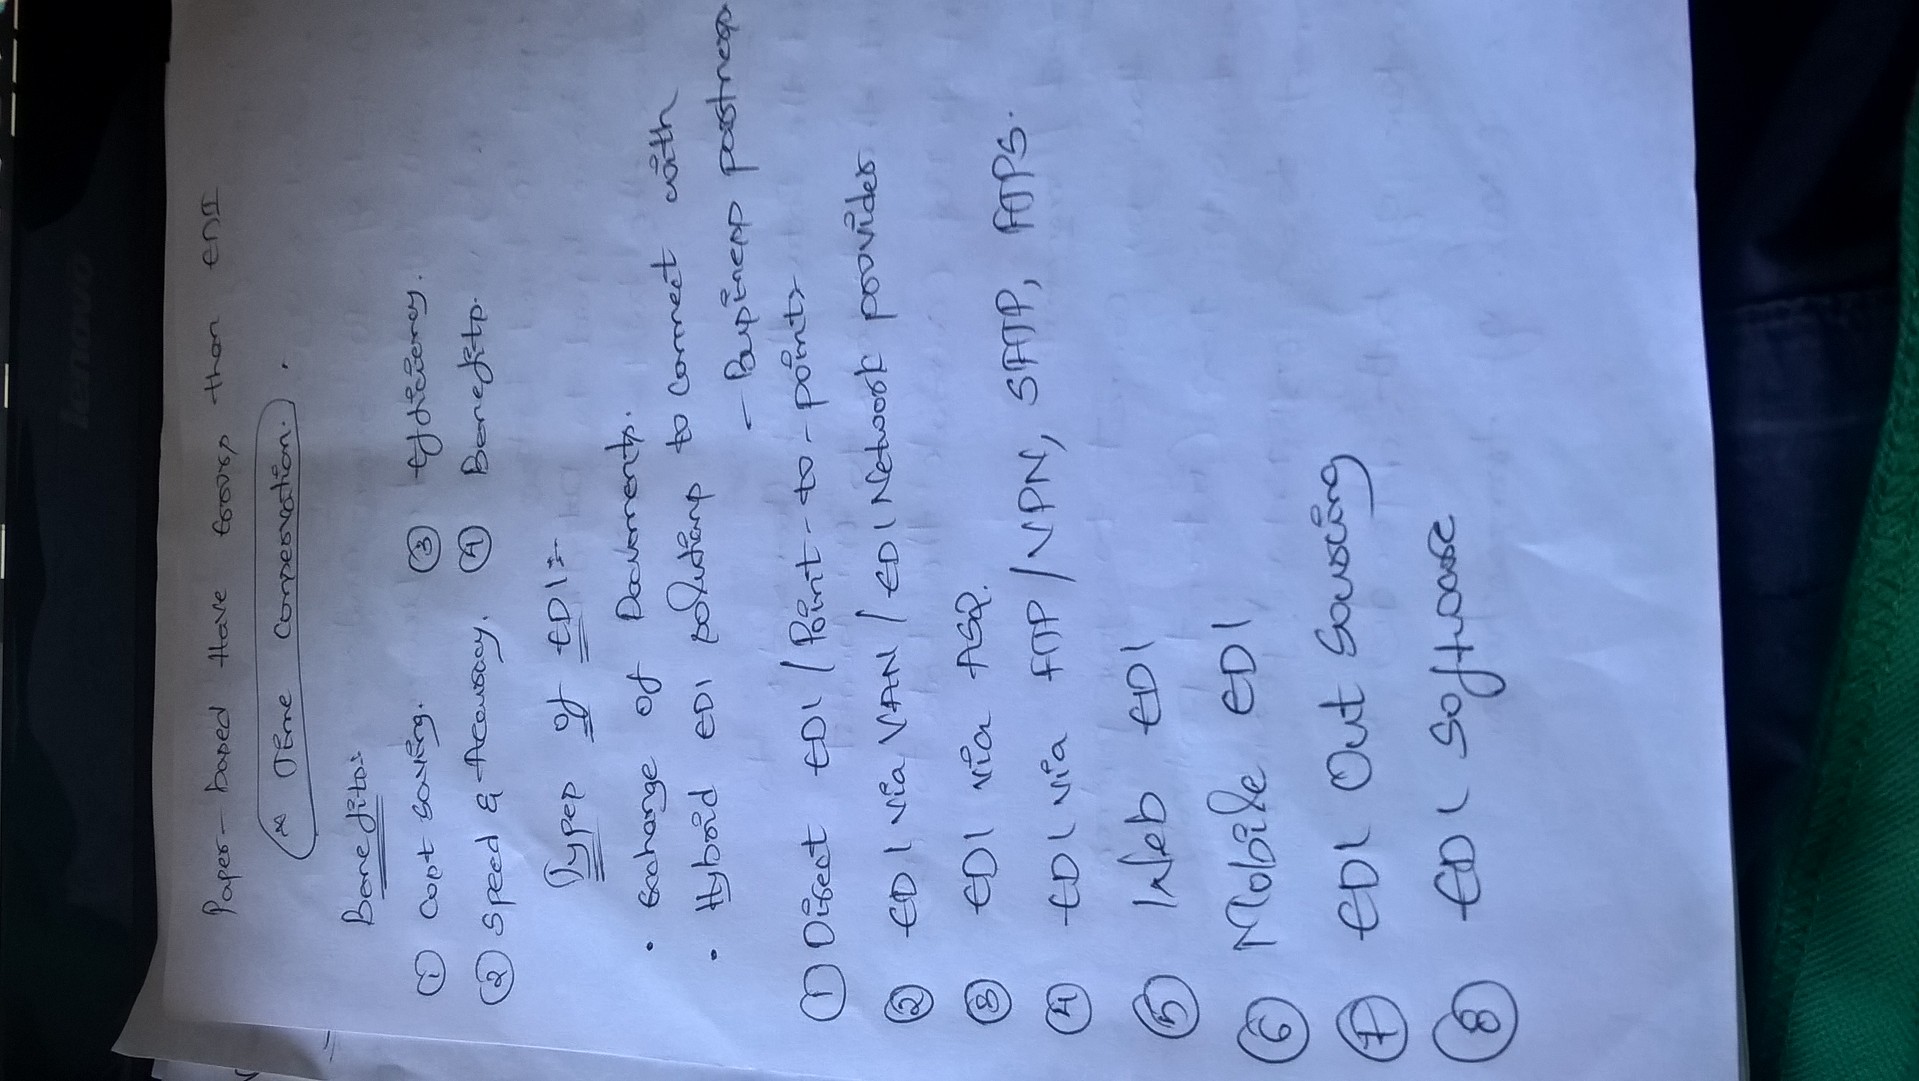 Paper-based Have Errors than EDI
* Time Conservation.
Benefits:
① Cost saving. ③ Efficiency.
② Speed & Accuracy. ④ Benefits.
Types of EDI:-
• Exchange of Documents.
• Hybrid EDI solutions to connect with
- Business partners
① Direct EDI / Point-to-point
② EDI via VAN / EDI Network provider
③ EDI via ASP.
④ EDI via FTP/VPN, SFTP, FTPS.
⑤ Web EDI
⑥ Mobile EDI
⑦ EDI Out Sourcing
⑧ EDI Software
lenovo